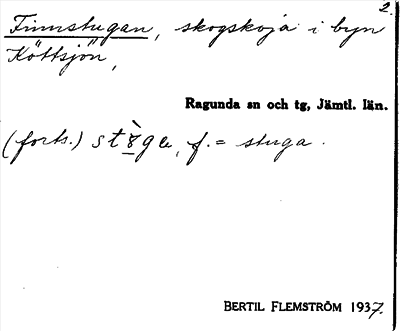 2.
Finnstugan, skogskoja i byn
Köttsjön,
Ragunda sn och tg, Jämtl. län.
(forts.) f. = stuga.
BERTIL FLEMSTRÖM 1937.